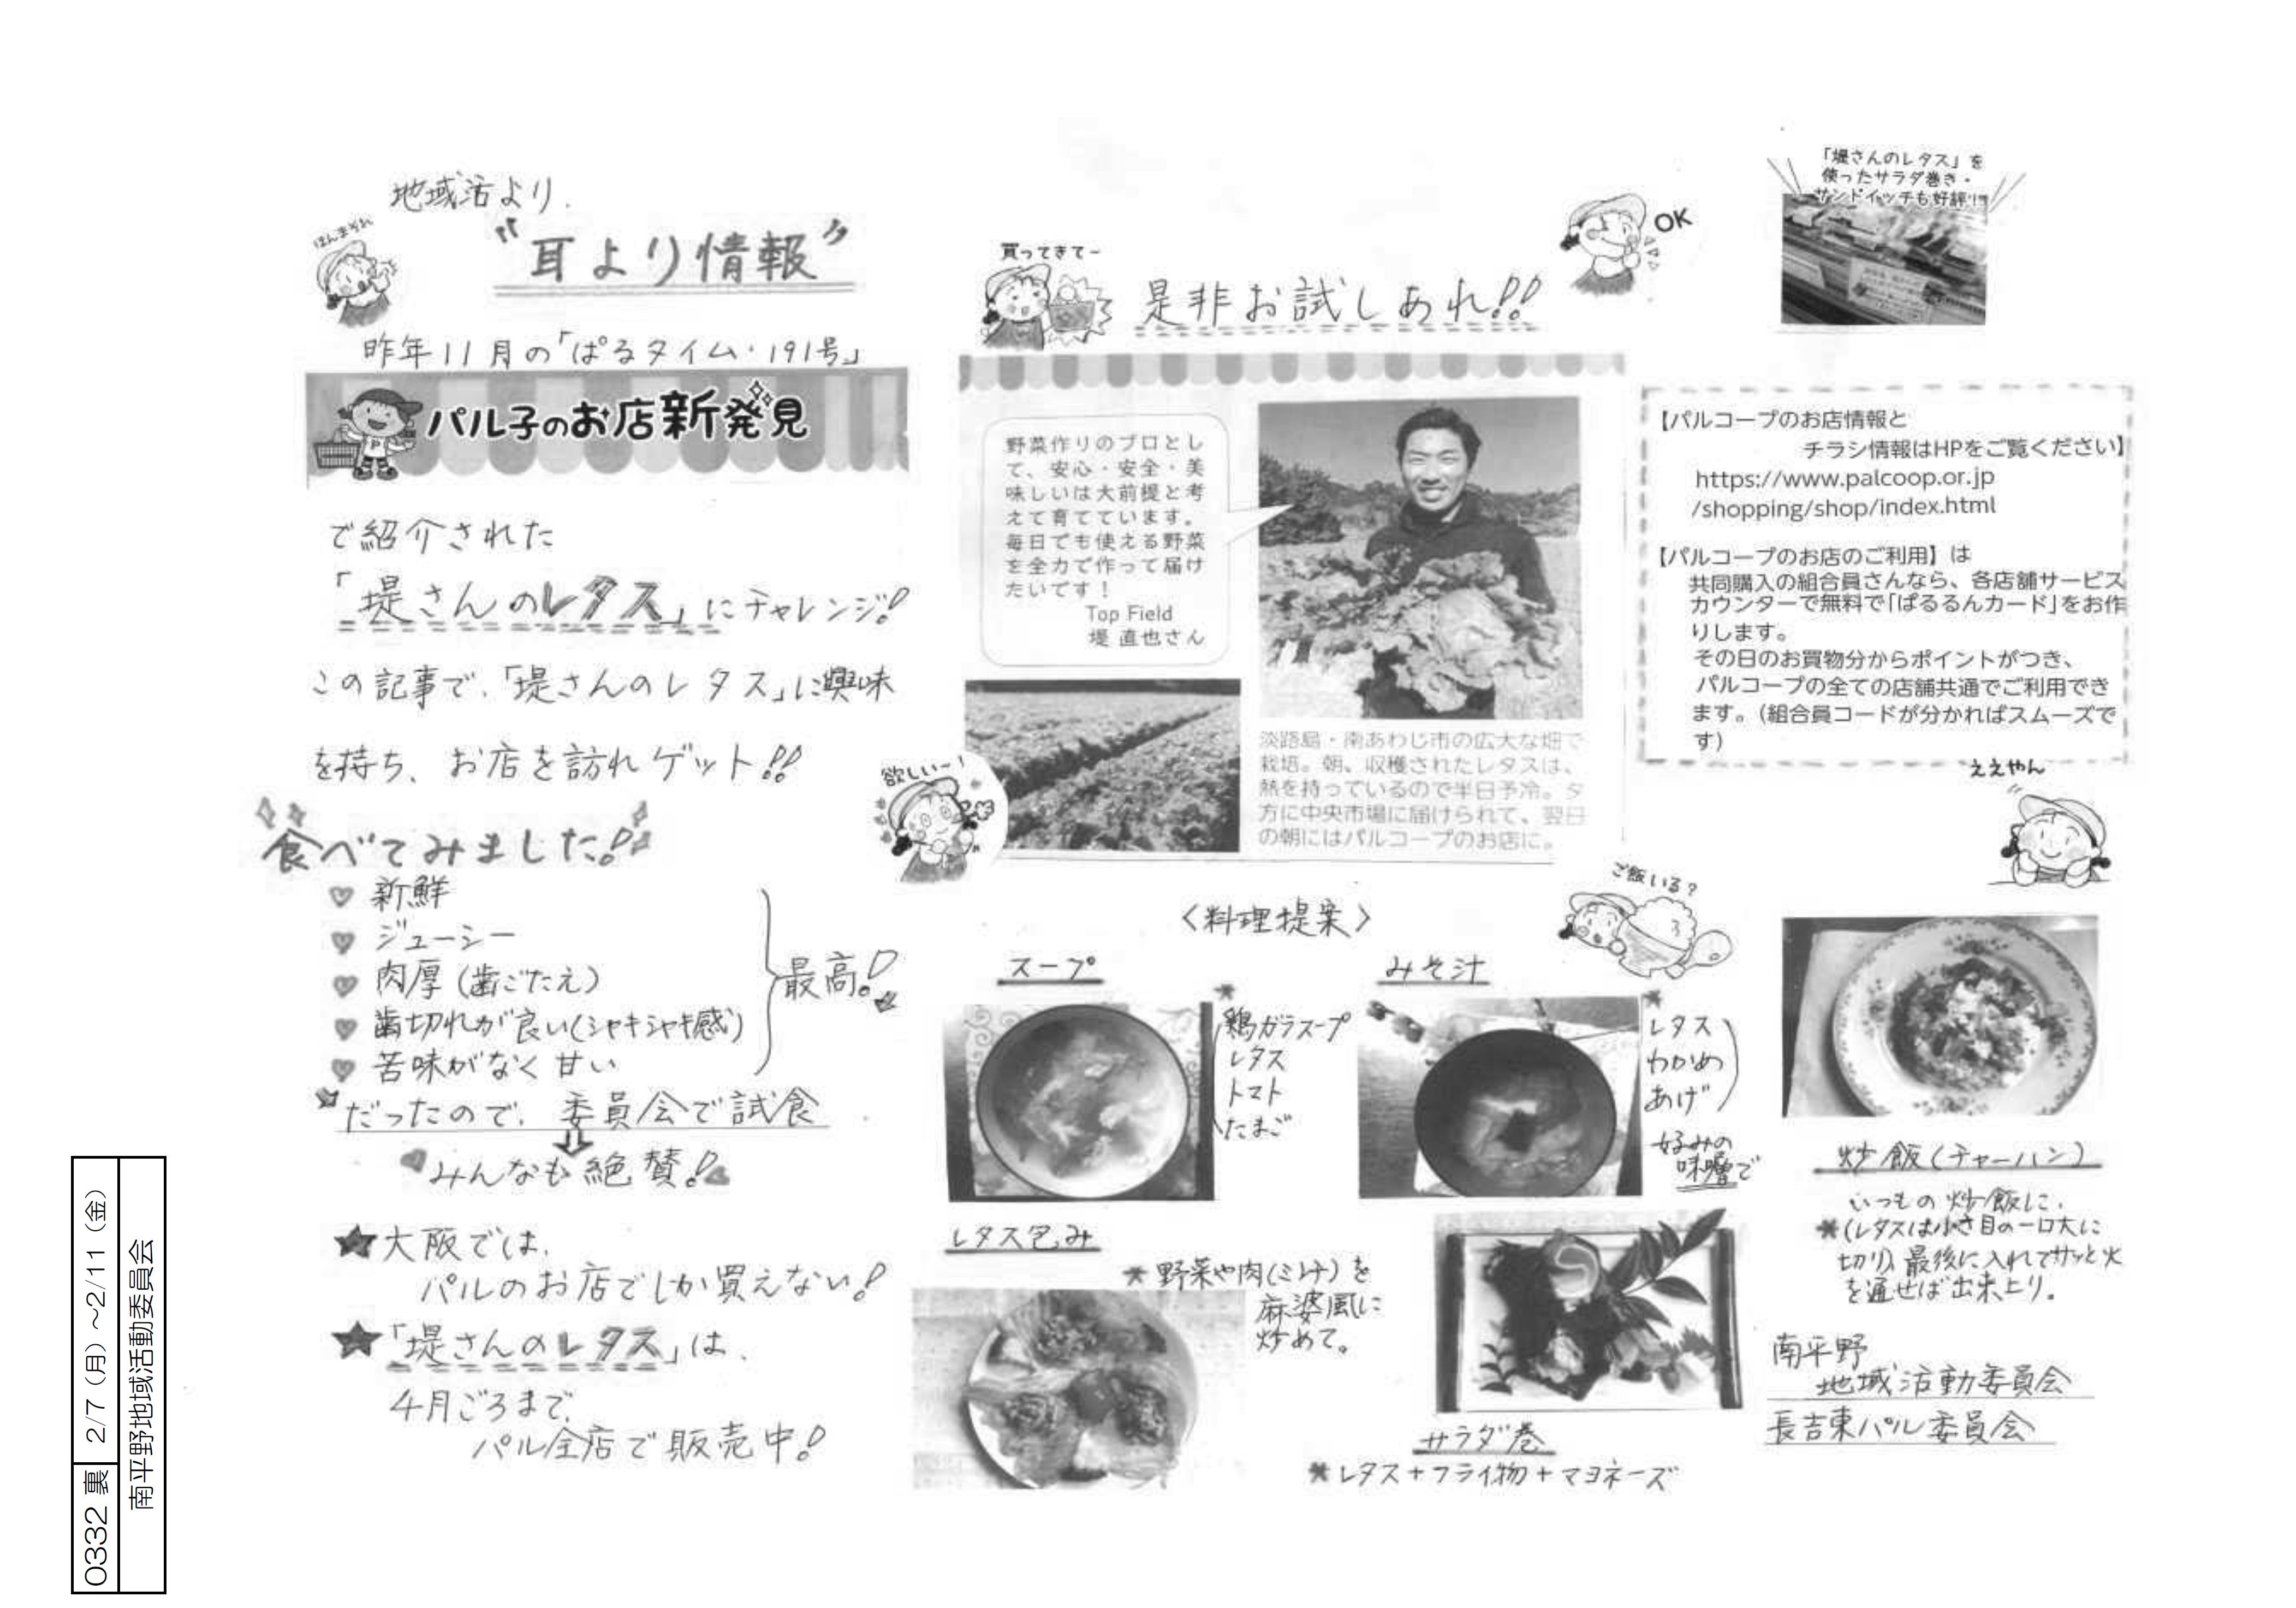 地域活より
ほんまそれ
"耳より情報"
昨年11月の「ぱるタイム・191号」
パル子のお店新発見
で紹介された
「堤さんのレタス」にチャレンジ!
この記事で、「堤さんのレタス」に興味
を持ち、お店を訪れゲット!!
食べてみました!
♥ 新鮮
♥ ジューシー
♥ 肉厚(歯ごたえ)
♥ 歯切れが良い(シャキシャキ感)
♥ 苦味がなく甘い
最高!
だったので、委員会で試食
⇩
みんなも絶賛!
★大阪では、
パルのお店でしか買えない!
★「堤さんのレタス」は、
4月ごろまで、
パル全店で販売中!
買ってきてー
是非お試しあれ!!
OK
「堤さんのレタス」を
使ったサラダ巻き・
サンドイッチも好評!!
野菜作りのプロとし
て、安心・安全・美
味しいは大前提と考
えて育てています。
毎日でも使える野菜
を全力で作って届け
たいです!
Top Field
堤 直也さん
淡路島・南あわじ市の広大な畑で
栽培。朝、収穫されたレタスは、
熱を持っているので半日予冷。夕
方に中央市場に届けられて、翌日
の朝にはパルコープのお店に。
欲しい〜!
【パルコープのお店情報と
チラシ情報はHPをご覧ください】
https://www.palcoop.or.jp
/shopping/shop/index.html
【パルコープのお店のご利用】は
共同購入の組合員さんなら、各店舗サービス
カウンターで無料で「ぱるるんカード」をお作
りします。
その日のお買物分からポイントがつき、
パルコープの全ての店舗共通でご利用でき
ます。(組合員コードが分かればスムーズで
す)
ええやん
〈料理提案〉
ご飯いる?
スープ
*
鶏ガラスープ
レタス
トマト
たまご
みそ汁
*
レタス
わかめ
あげ
好みの
味噌で
炒飯(チャーハン)
いつもの炒飯に、
*(レタスは小さ目の一口大に
切り)最後に入れてサッと火
を通せば出来上り。
レタス包み
*野菜や肉(ミンチ)を
麻婆風に
炒めて。
サラダ巻
*レタス+フライ物+マヨネーズ
南平野
地域活動委員会
長吉東パル委員会
0332 裏 2/7(月)〜2/11(金)
南平野地域活動委員会